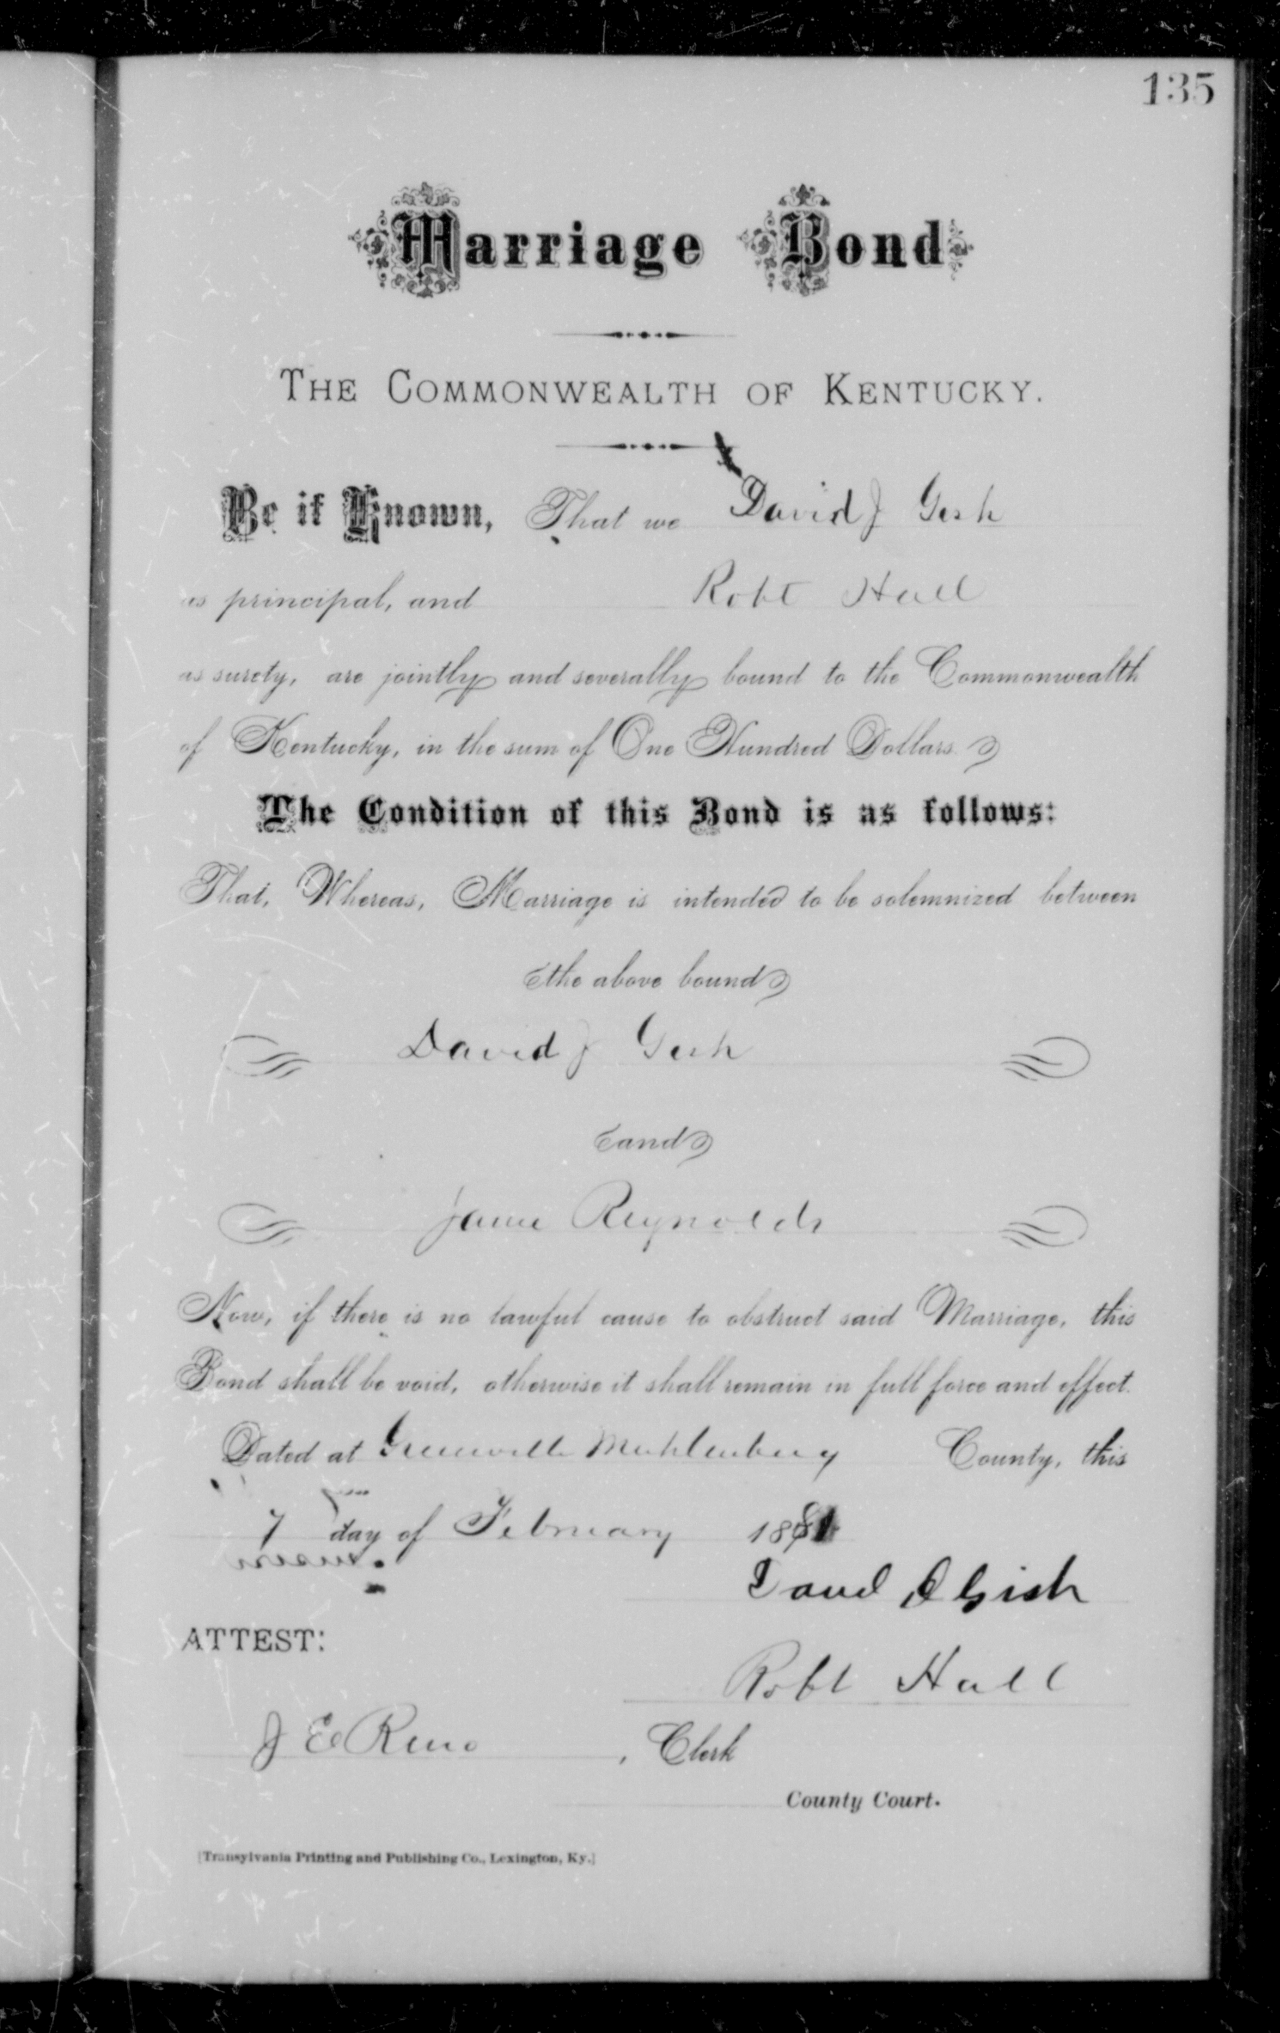 135
Marriage Bond
THE COMMONWEALTH OF KENTUCKY.
Be it Known, That we David J Gish
as principal, and Robt Hall
as surety, are jointly and severally bound to the Commonwealth
of Kentucky, in the sum of One Hundred Dollars.
The Condition of this Bond is as follows:
That, Whereas, Marriage is intended to be solemnized between
the above bound
David J Gish
and
Jane Reynolds
Now, if there is no lawful cause to obstruct said Marriage, this
Bond shall be void, otherwise it shall remain in full force and effect.
Dated at Greenville Muhlenberg County, this
7 day of February 1881
David J Gish
ATTEST:
Robt Hall
J E Reno, Clerk
County Court.
[Transylvania Printing and Publishing Co., Lexington, Ky.]